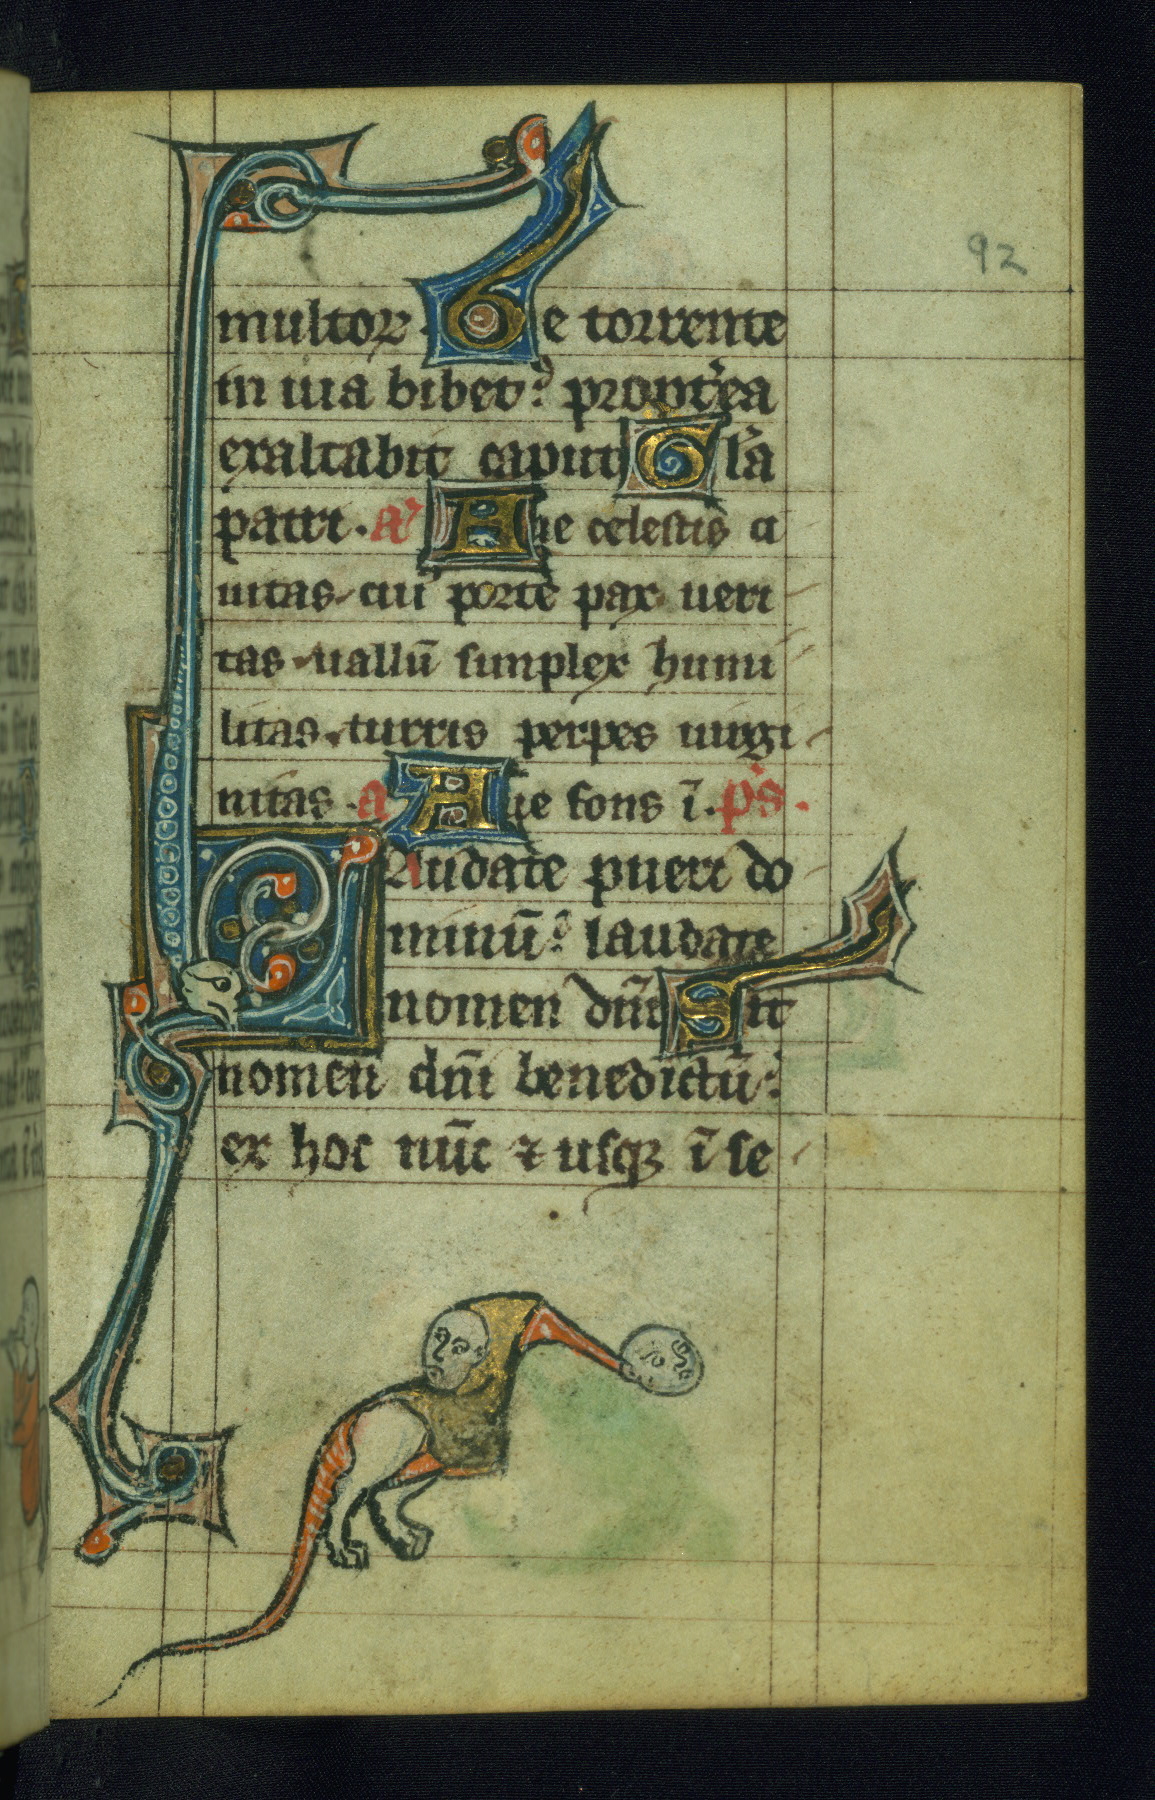 92
multoꝝ. De torrente
in uia bibet: propt'ea
exaltabit caput Gl'a
patri. a' Aue celestis ci
uitas cui' porte pax ueri
tas uallū simplex humi
litas turris perpes uirgi
nitas. a Aue fons ī. p's.
Laudate pueri do
minū: laudate
nomen dn̄i Sit
nomen dn̄i benedictū:
ex hoc nūc ⁊ usqꝫ ī se